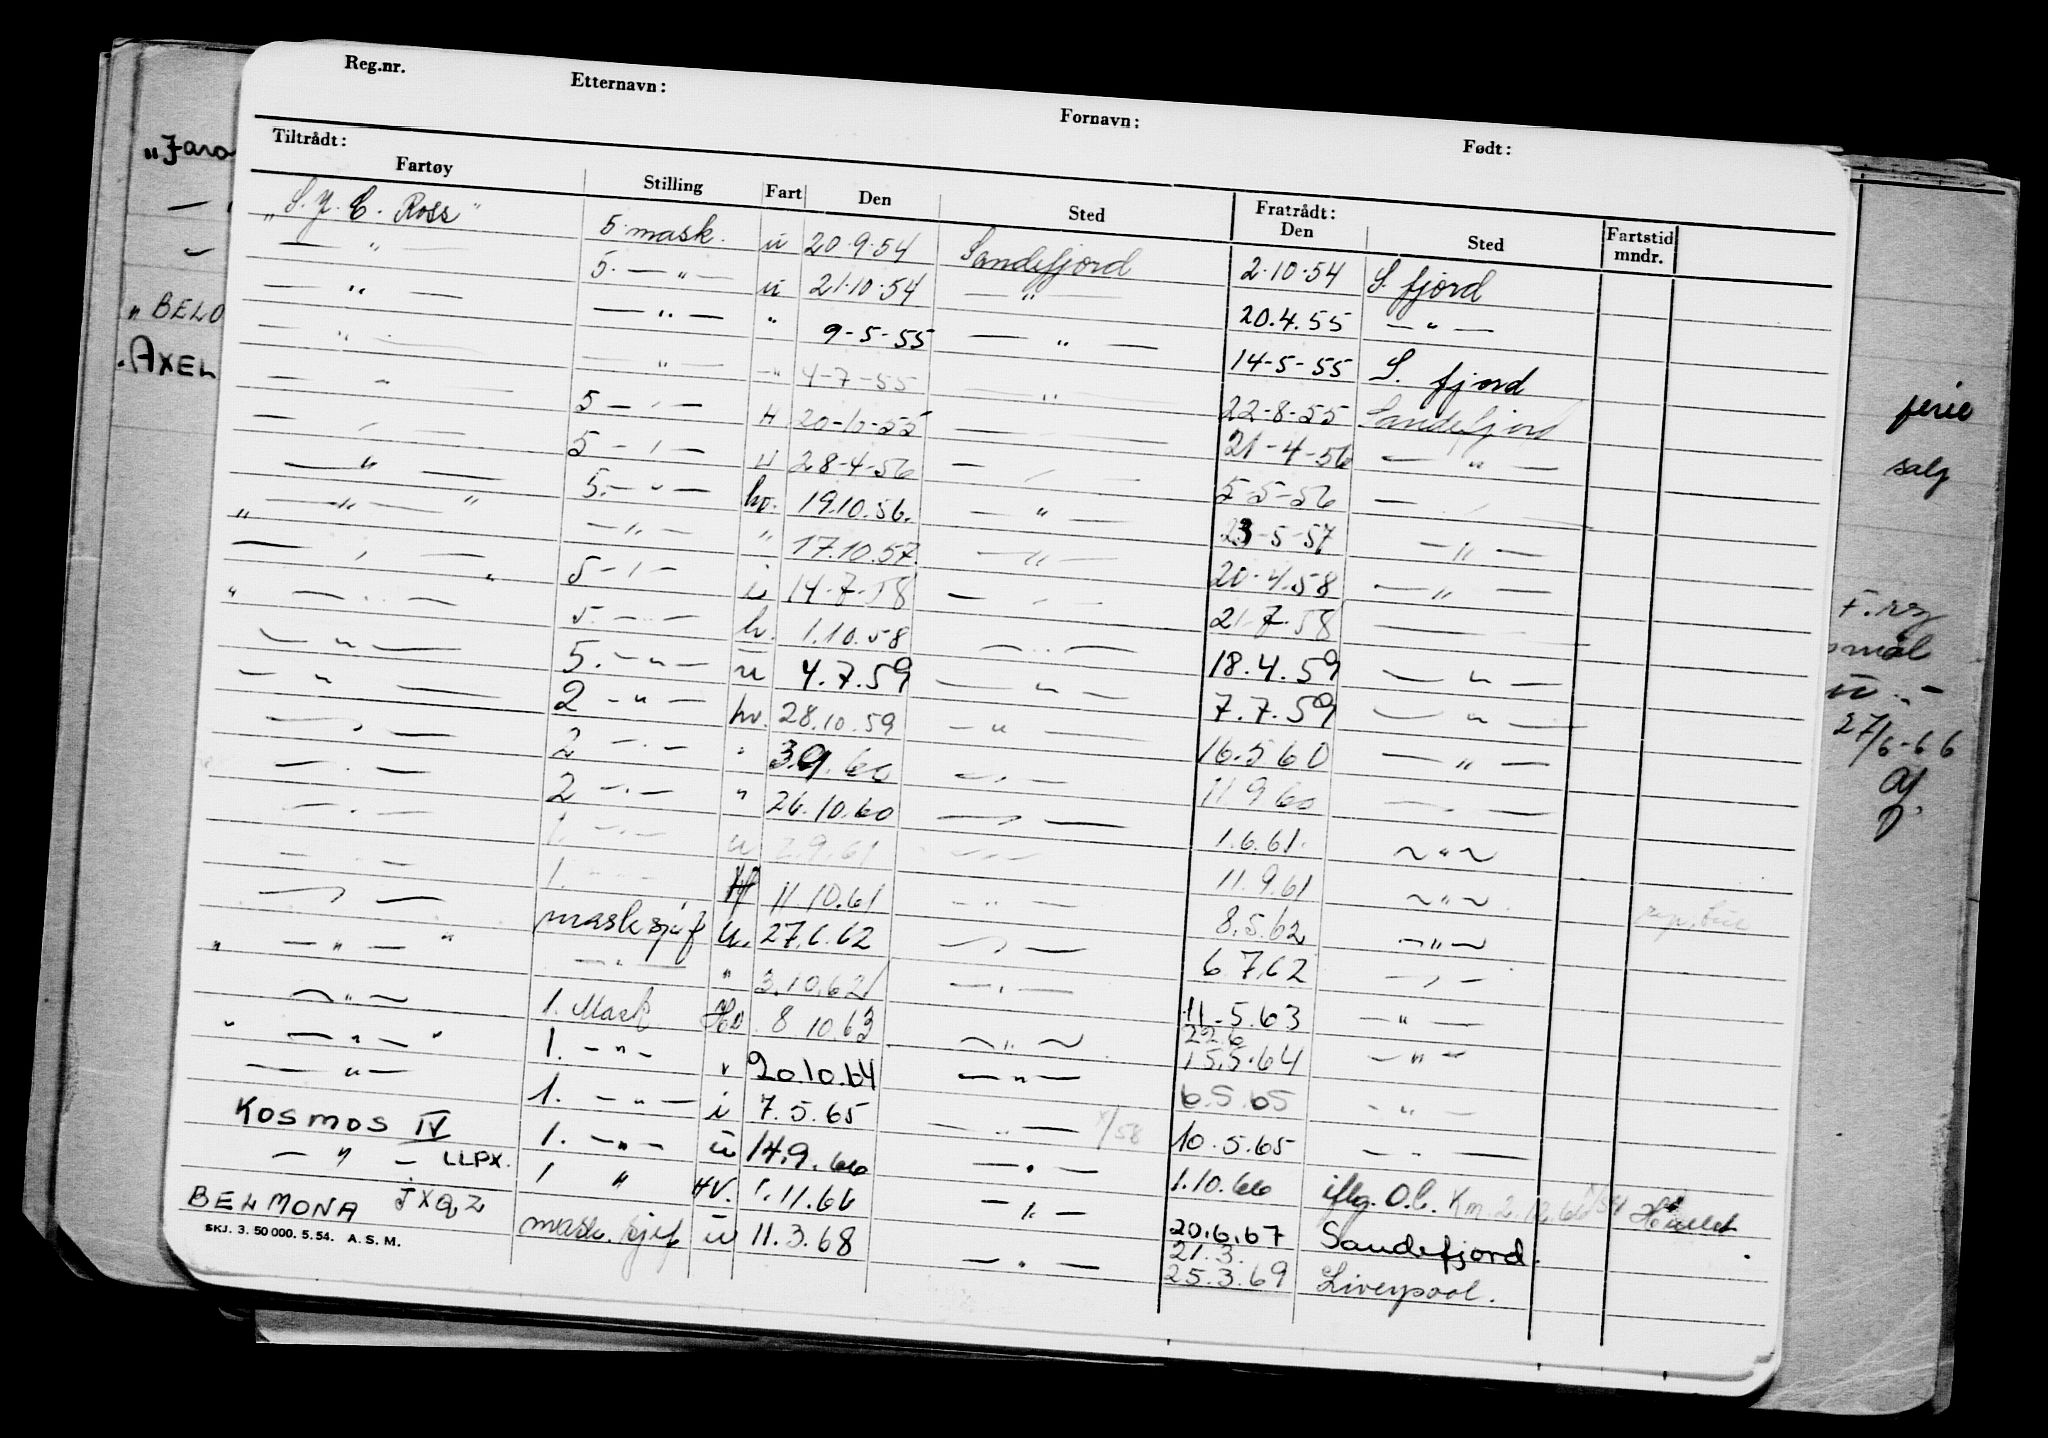 Reg.nr. Etternavn: Fornavn: Født:
Tiltrådt: Fratrådt:
Fartøy Stilling Fart Den Sted Den Sted Fartstid mndr.
"S. J. C. Ross" 5. mask. u 20.9.54 Sandefjord 2.10.54 S. fjord
— " — 5. — " — u 21.10.54 — " — 20.4.55 — " —
— " — — " — " 9-5-55 — " — 14-5-55 S. fjord
— " — — " — " 4-7-55 — " — 22-8-55 Sandefjord
— " — 5 — " — H 20-10-55 — " — 21-4-56 — " —
— " — 5 — " — U 28-4-56 — " — 5-5-56 — " —
— " — 5. — " — hv. 19.10.56. — " — 23-5-57 — " —
" — " — " — " — " 17.10.57. — " — 20.4.58 — " —
— " — 5 — " — i 14-7-58 — " — 21.7.58 — " —
" — " — " 5. — " — hv. 1.10.58 — " — 18.4.59 — " —
— " — 5. — " — u 4.7.59 — " — 7.7.59 — " —
— " — 2 — " — hv. 28.10.59 — " — 16.5.60 — " —
— " — 2 — " — " 3.9.60 — " — 11.9.60 — " —
— " — 2 — " — " 26.10.60 — " — 1.6.61. — " —
— " — 1. — " — u 2.9.61 — " — 11.9.61 — " —
— " — 1. — " — Hf 11.10.61 — " — 8.5.62 — " —
— " — masksjef u. 27.6.62 — " — 6.7.62 — " —
" — " — " — " — " 3.10.62 — " — 11.5.63 — " —
— " — 1. Mask Hv. 8.10.63 — " — 22.6 15.5.64 — " —
" — " — " 1. — " — " 20.10.64 — " — 6.5.65 — " —
— " — 1. — " — i 7.5.65 — " — 10.5.65 — " —
KOSMOS IV 1. — " — u 14.9.66 — " — 1.10.66 iflg. O.C.
— " — LLPX. 1 " HV. 1.11.66 — " — 20.6.67 Sandefjord.
BELMONA JXQZ mask. sjef u 11.3.68 — " — 21.3. 25.3.69 Liverpool.
SKJ. 3. 50 000. 5. 54. A. S. M.
"Jara
"BELO
"AXEL
ferie
salg
27/6-66